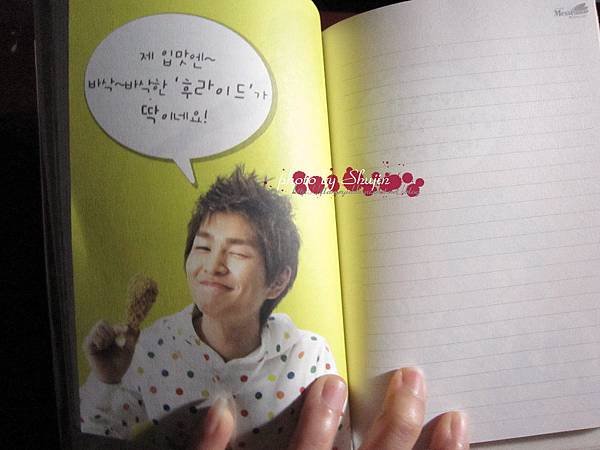 제 입맛엔~
바삭~바삭한 '후라이드'가
딱이네요!
photo by Shujin